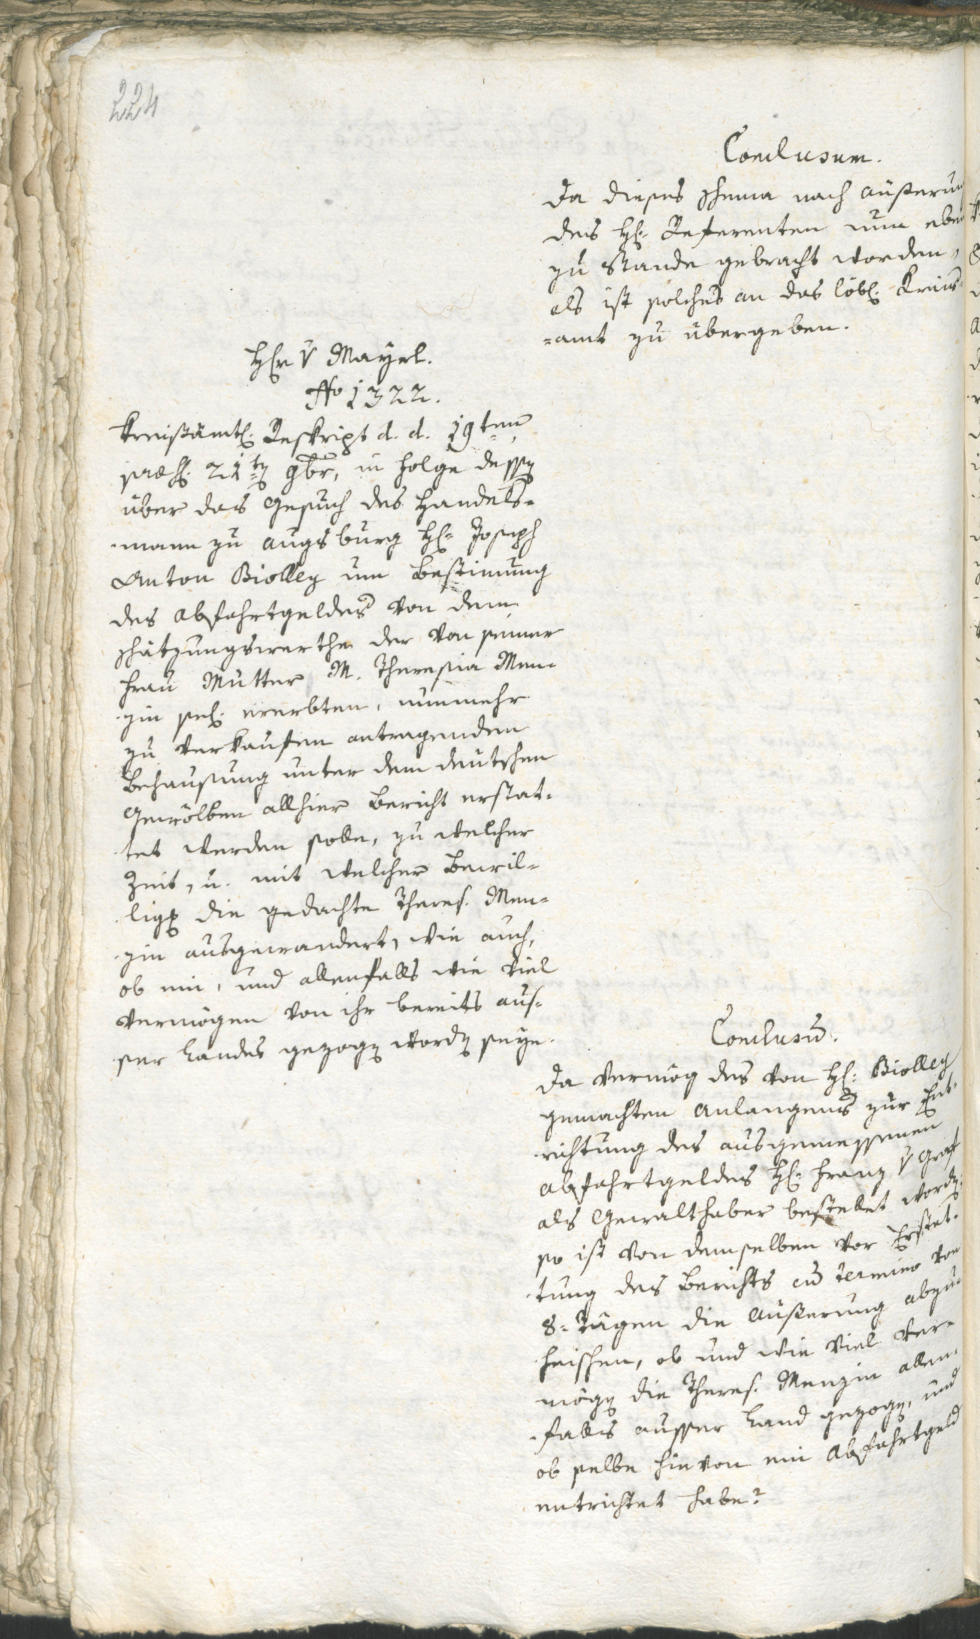 224
Conclusum.
Da dieses Schema nach äußerun
des H: Referenten nun eben
zu Stande gebracht worden,
als ist solches an das löbl: Kreis-
=amt zu übergeben.
Hr v Mayrl.
No 1322.
Kreisämtl: Reskript d. d. 19ten
21ten 9br, in Folge dessen
über das Gesuch des Handels-
-mann zu Augsburg H: Joseph
Anton Biolley um Bestimung
des Abfahrtgeldes von dem
Schätzungswerthe der von seiner
Frau Mutter M. Theresia Men-
zin sel: ererbten, nunmehr
zu verkaufen antragenden
Behausung unter dem deutschen
Gewölben allhier Bericht erstat-
tet werden solle, zu welcher
Zeit, u. mit welcher Bewil-
ligg die gedachte Theres. Men-
zin ausgewandert, wie auch,
ob ein, und allenfalls wie viel
Vermögen von ihr bereits aus-
ser Landes gezogen worden seye.
Conclusum.
Da vermög des von H: Biolley
gemachten Anlangens zur Ent-
richtung des ausgemessenen
Abfahrtgeldes H: Franz v Graf
als Gewalthaber bestellet worden,
so ist von demselben vor Erstat-
tung des Berichts cum Termino von
8=Tägen die Äußerung abzu-
heischen, ob und wie viel Ver-
mögen die Theres. Menzin allen-
-falls ausser Land gezogen, und
ob selbe hievon ein Abfahrtgeld
entrichtet habe?